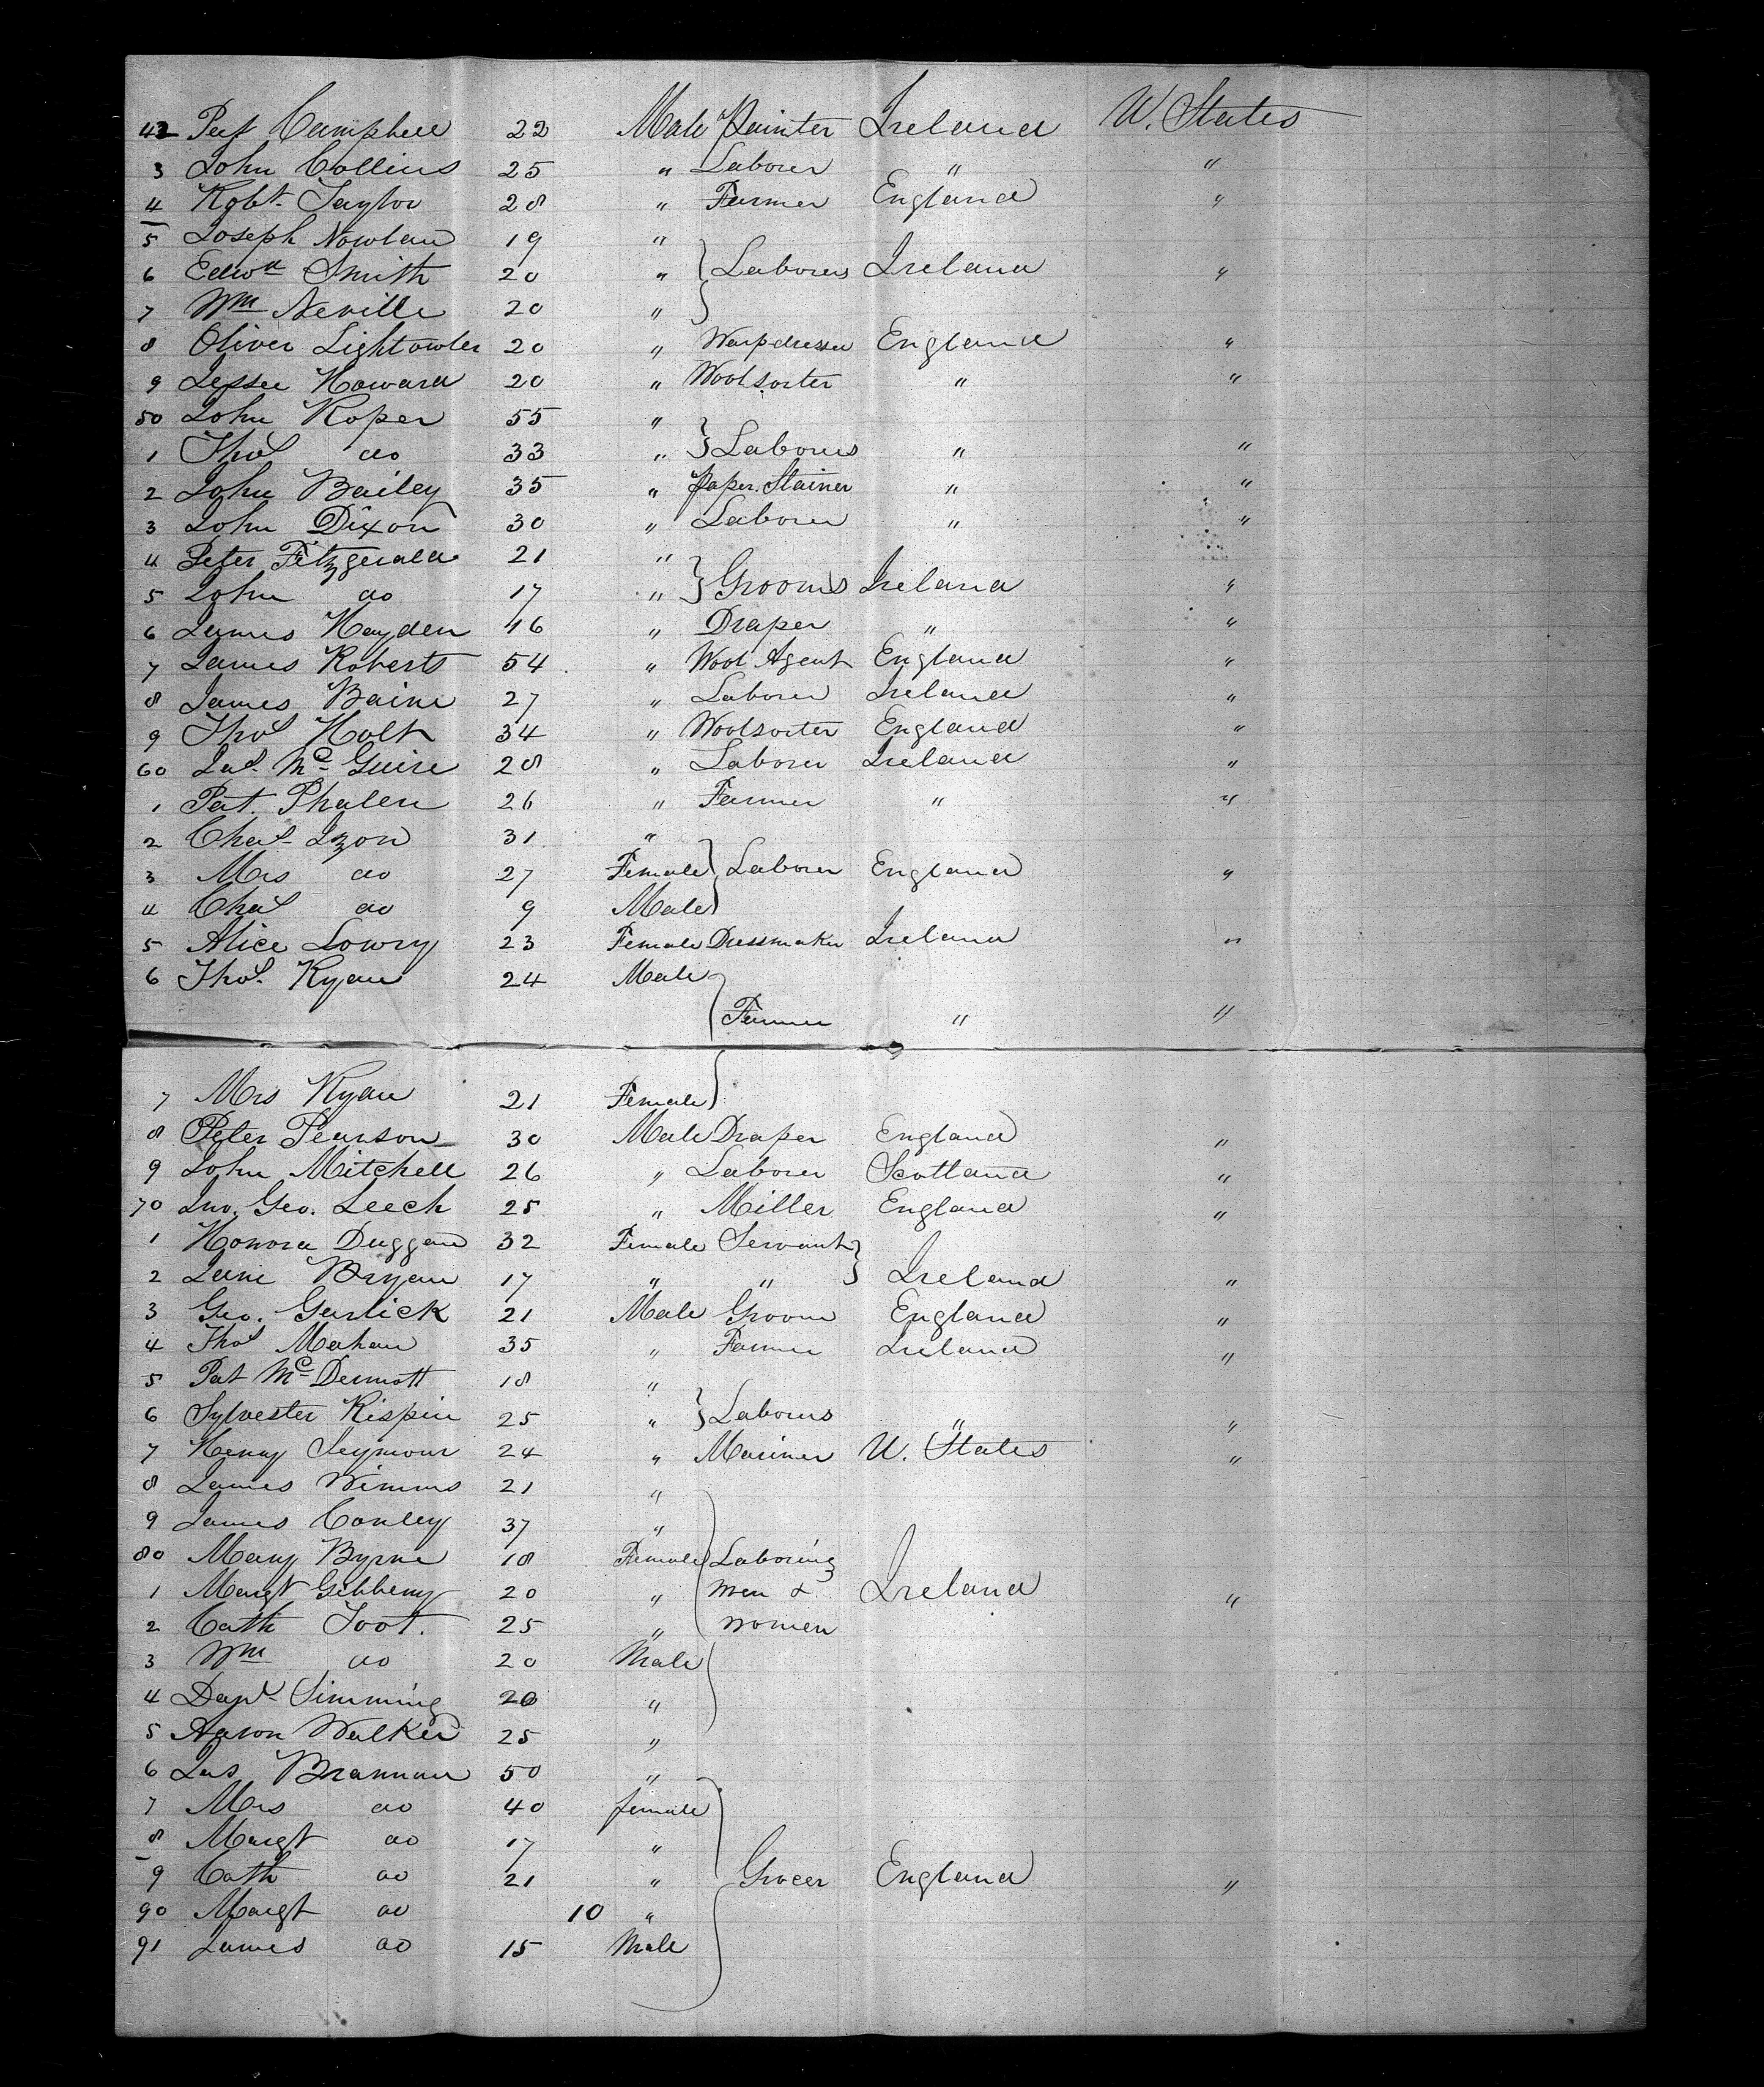 42 Pat Campbell 22 Male Painter Ireland U. States
3 John Collins 25 " Laborer " "
4 Robt. Taylor 28 " Farmer England "
5 Joseph Nowlan 19 "
6 Edwd Smith 20 " Laborers Ireland "
7 Wm Neville 20 "
8 Oliver Lightowler 20 " Warpdresser England "
9 Jesse Howard 20 " Woolsorter " "
50 John Roper 55 "
1 Thos do 33 " Laborers " "
2 John Bailey 35 " Paper Stainer " "
3 John Dixon 30 " Laborer " "
4 Peter Fitzgerald 21 "
5 John do 17 " Grooms Ireland "
6 James Hayden 46 " Draper " "
7 James Roberts 54 " Wool Agent England "
8 James Baine 27 " Laborer Ireland "
9 Thos Holt 34 " Woolsorter England "
60 Jas. McGuire 28 " Laborer Ireland "
1 Pat. Phalen 26 " Farmer " "
2 Chas Izon 31 "
3 Mrs do 27 Female Laborer England "
4 Chas do 9 Male
5 Alice Lowry 23 Female Dressmaker Ireland "
6 Thos. Ryan 24 Male
Farmer " "
7 Mrs Ryan 21 Female
8 Peter Pearson 30 Male Draper England "
9 John Mitchell 26 " Laborer Scotland "
70 Jno. Geo. Leech 25 " Miller England "
1 Honora Duggan 32 Female Servant
2 Jane Bryan 17 " " Ireland "
3 Geo. Garlick 21 Male Groom England "
4 Thos Mahan 35 " Farmer Ireland "
5 Pat McDermott 18 "
6 Sylvester Rispin 25 " Laborers " "
7 Henry Seymour 24 " Mariner U. States "
8 James Wimms 21 "
9 James Conley 37 "
80 Mary Byrne 18 Female Laboring
1 Margt Gibbeny 20 " men & Ireland "
2 Cath Toot. 25 " women
3 Wm do 20 Male
4 Danl. Simming 20 "
5 Aaron Walker 25 "
6 Jas Brannan 50 "
7 Mrs do 40 female
8 Margt do 17 "
9 Cath do 21 " Grocer England "
90 Margt do 10 "
91 James do 15 Male